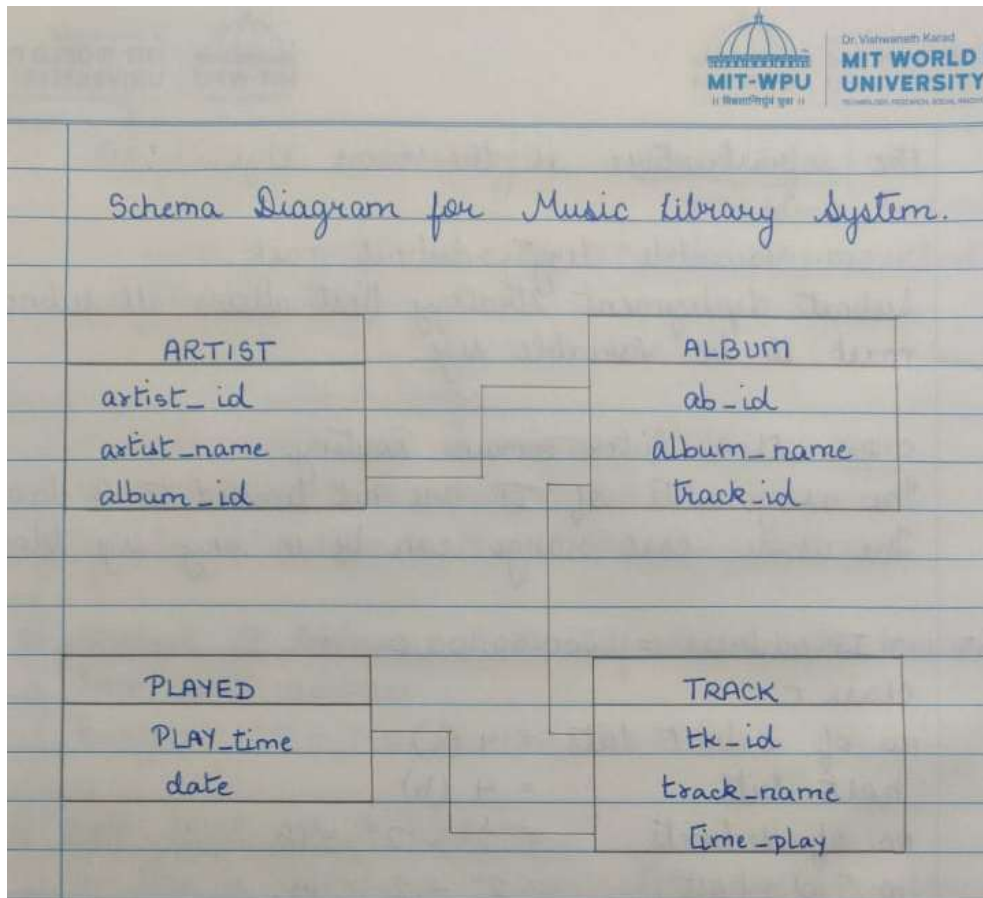 MIT-WPU
Dr. Vishwanath Karad
MIT WORLD
UNIVERSITY
Schema Diagram for Music Library System.
ARTIST
artist_id
artist_name
album_id
ALBUM
ab_id
album_name
track_id
PLAYED
PLAY_time
date
TRACK
tk_id
track_name
time_play